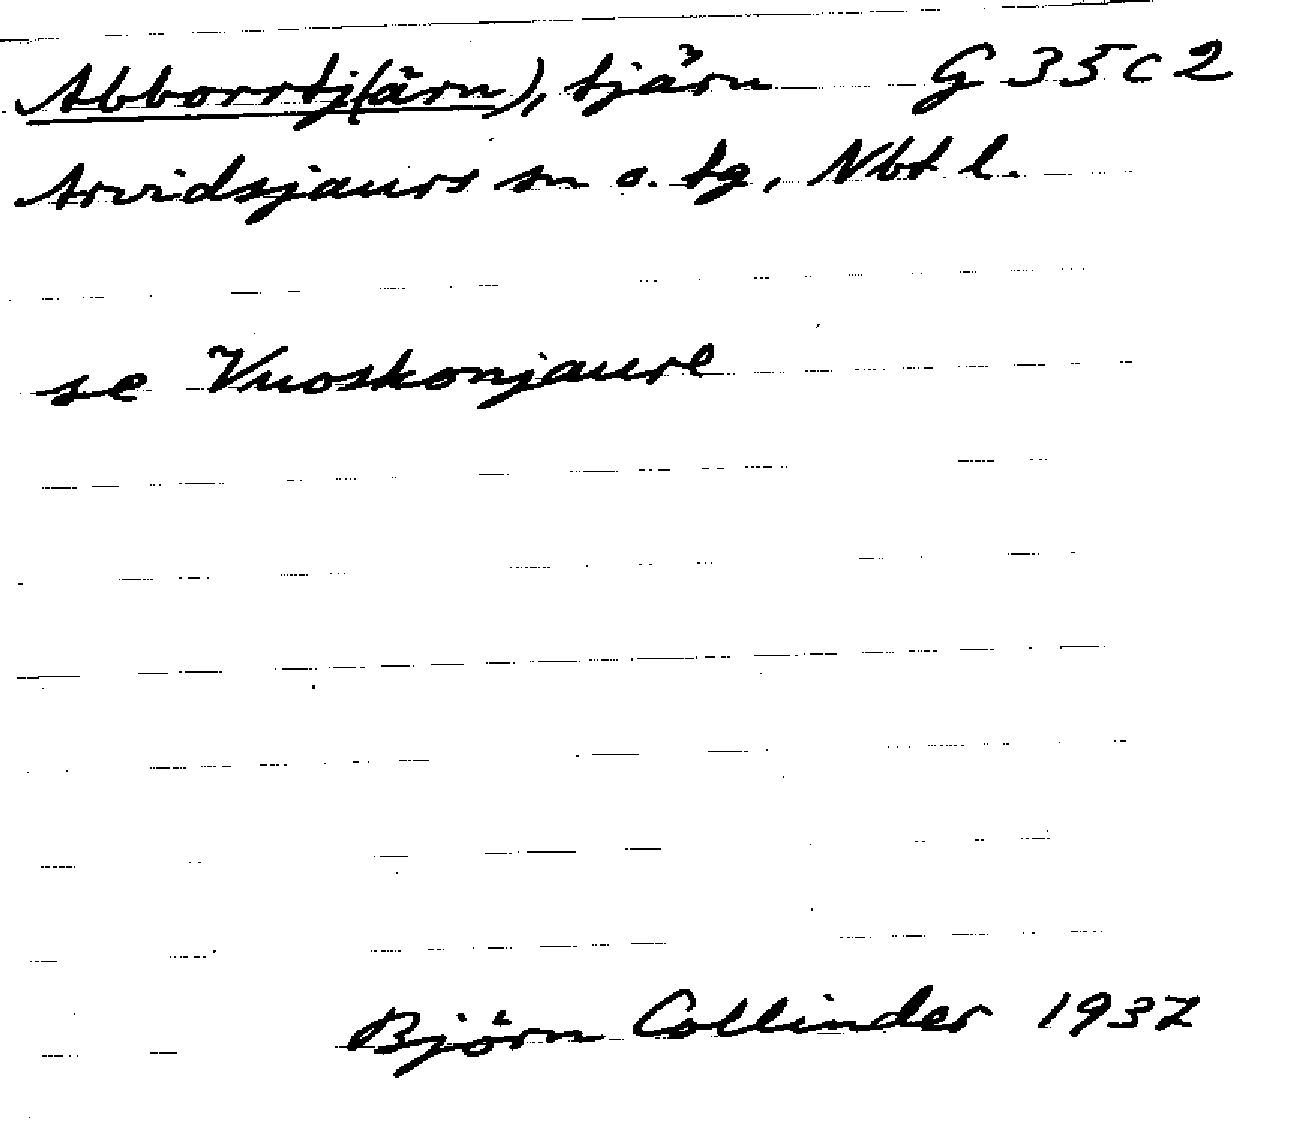 Abborrtj(ärn), tjärn G 35 c 2
Arvidsjaurs sn o. tg, Nbt l.
se Vuoskonjaure
Björn Collinder 1937